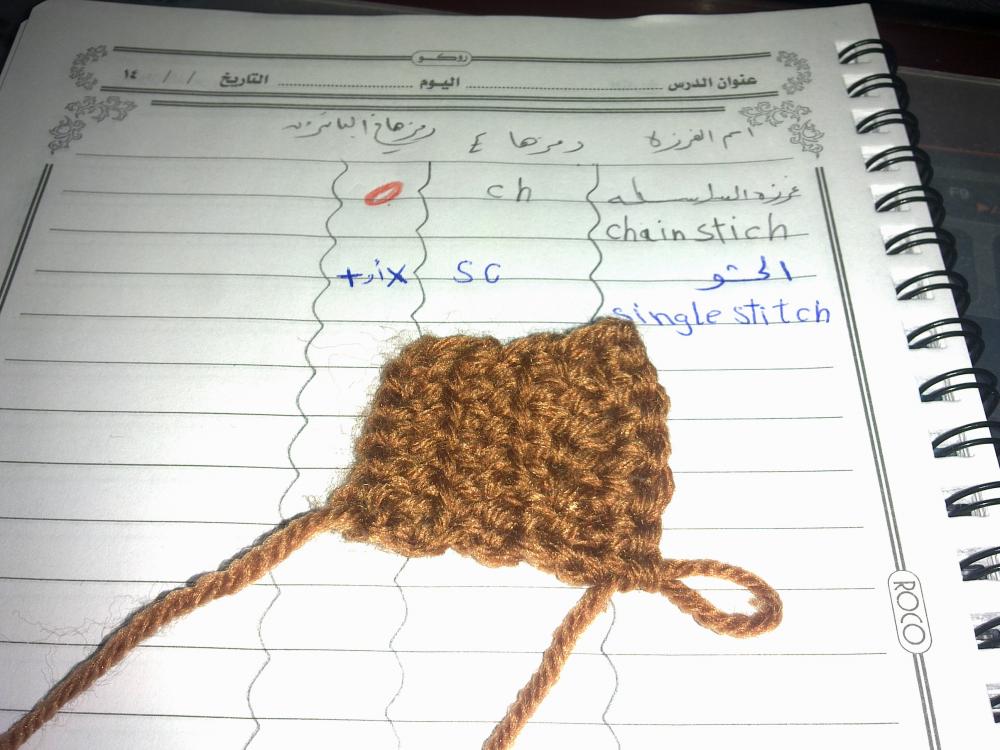 روكو
عنوان الدرس ........................ اليوم ........................ التاريخ / / ١٤
اسم الغرزة رمزها ع رمزها في الباترون
غرزة السلسلة ch
chain stich
الحشو SC X أو +
single stitch
ROCO